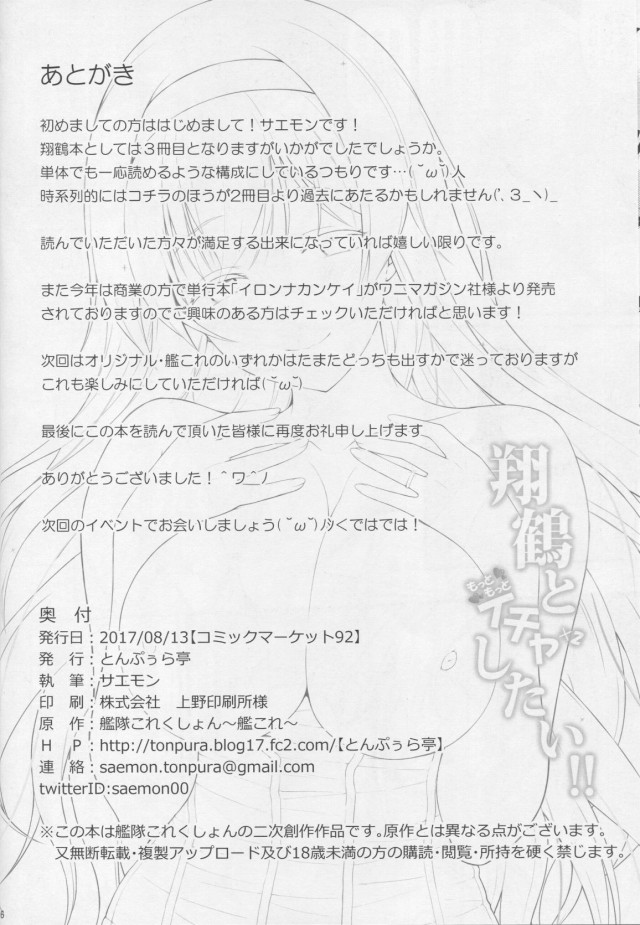 あとがき
初めましての方ははじめまして！サエモンです！
翔鶴本としては３冊目となりますがいかがでしたでしょうか。
単体でも一応読めるような構成にしているつもりです…( ˘ω˘)人
時系列的にはコチラのほうが2冊目より過去にあたるかもしれません('、３_ヽ)_
読んでいただいた方々が満足する出来になっていれば嬉しい限りです。
また今年は商業の方で単行本「イロンナカンケイ」がワニマガジン社様より発売
されておりますのでご興味のある方はチェックいただければと思います！
次回はオリジナル・艦これのいずれかはたまたどっちも出すかで迷っておりますが
これも楽しみにしていただければ( ˘ω˘)
最後にこの本を読んで頂いた皆様に再度お礼申し上げます
ありがとうございました！＾ワ＾ﾉ
次回のイベントでお会いしましょう( ˘ω˘)ﾉｼくではでは！
翔鶴と
もっと
もっと
イチャ×2
したい!!
奥　付
発行日：2017/08/13【コミックマーケット92】
発　行：とんぷぅら亭
執　筆：サエモン
印　刷：株式会社　上野印刷所様
原　作：艦隊これくしょん～艦これ～
Ｈ　Ｐ：http://tonpura.blog17.fc2.com/【とんぷぅら亭】
連　絡：saemon.tonpura@gmail.com
twitterID:saemon00
※この本は艦隊これくしょんの二次創作作品です。原作とは異なる点がございます。
又無断転載・複製アップロード及び18歳未満の方の購読・閲覧・所持を硬く禁じます。